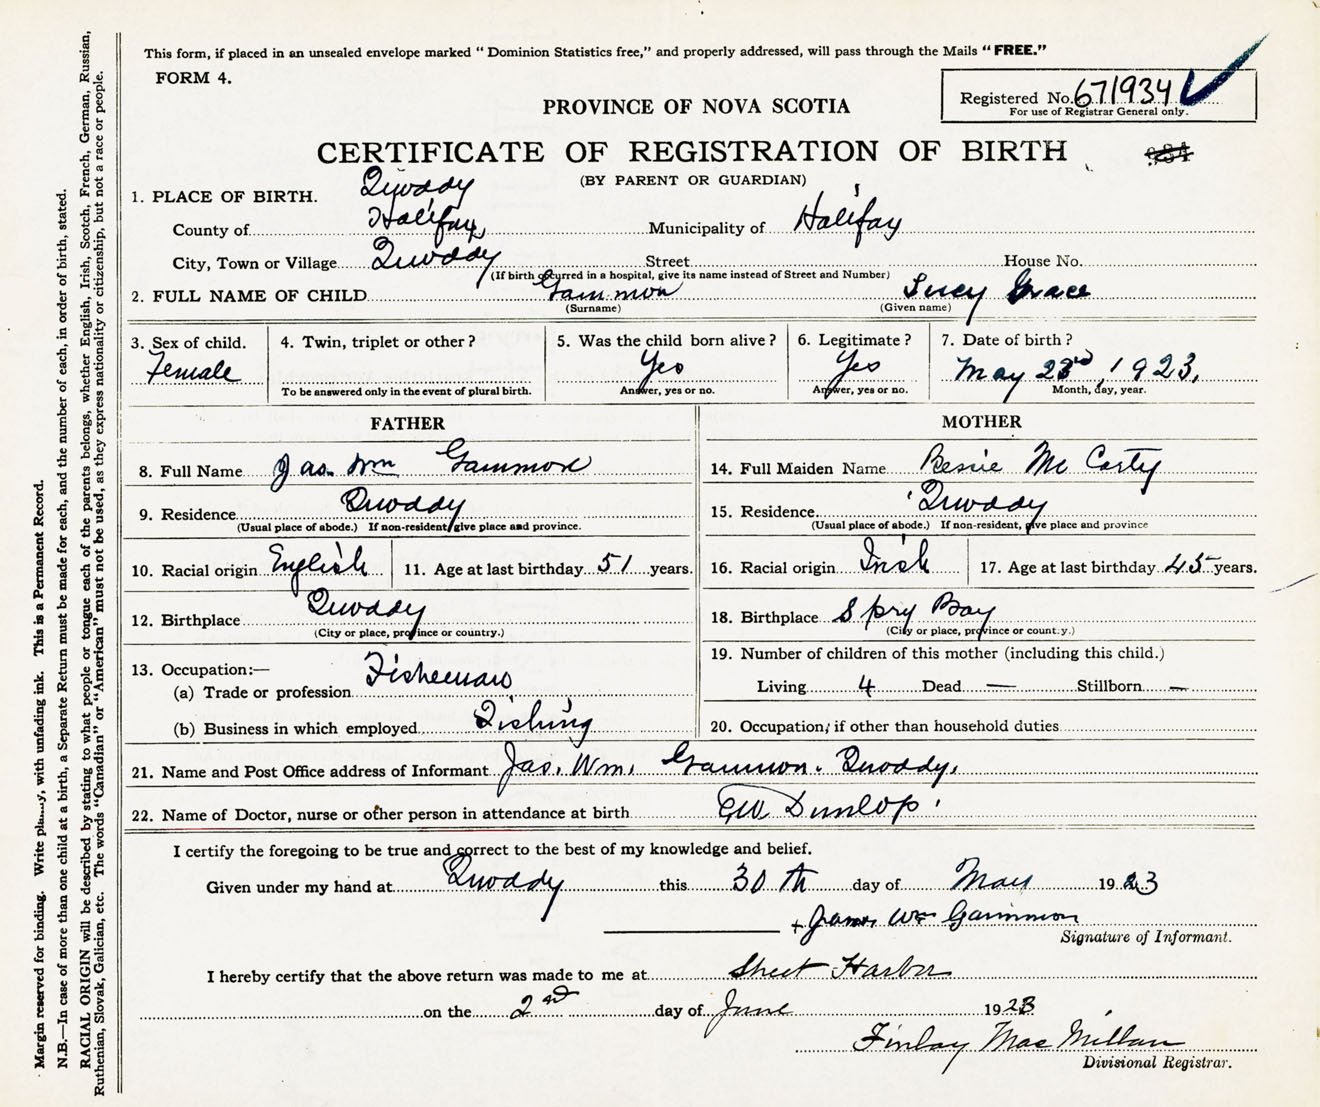 This form, if placed in an unsealed envelope marked “ Dominion Statistics free,” and properly addressed, will pass through the Mails “ FREE.”
FORM 4.
Registered No. 671934
For use of Registrar General only.
PROVINCE OF NOVA SCOTIA
CERTIFICATE OF REGISTRATION OF BIRTH
(BY PARENT OR GUARDIAN)
1. PLACE OF BIRTH. Quoddy
County of Halifax Municipality of Halifax
City, Town or Village Quoddy Street House No.
(If birth occurred in a hospital, give its name instead of Street and Number)
2. FULL NAME OF CHILD Gammon Lucy Grace
(Surname) (Given name)
3. Sex of child. Female
4. Twin, triplet or other ?
To be answered only in the event of plural birth.
5. Was the child born alive ? Yes
Answer, yes or no.
6. Legitimate ? Yes
Answer, yes or no.
7. Date of birth ? May 23rd, 1923.
Month, day, year.
FATHER
8. Full Name Jas. Wm Gammon
9. Residence Quoddy
(Usual place of abode.) If non-resident, give place and province.
10. Racial origin English 11. Age at last birthday 51 years.
12. Birthplace Quoddy
(City or place, province or country.)
13. Occupation:—
(a) Trade or profession Fisherman
(b) Business in which employed Fishing
MOTHER
14. Full Maiden Name Bessie Mc Carty
15. Residence. Quoddy
(Usual place of abode.) If non-resident, give place and province
16. Racial origin Irish 17. Age at last birthday 45 years.
18. Birthplace Spry Bay
(City or place, province or country.)
19. Number of children of this mother (including this child.)
Living 4 Dead — Stillborn —
20. Occupation, if other than household duties
21. Name and Post Office address of Informant Jas. Wm. Gammon. Quoddy.
22. Name of Doctor, nurse or other person in attendance at birth GW Dunlop.
I certify the foregoing to be true and correct to the best of my knowledge and belief.
Given under my hand at Quoddy this 30 th day of May 1923
+ James Wm Gammon
Signature of Informant.
I hereby certify that the above return was made to me at Sheet Harbor
on the 2nd day of June 1923
Finlay Mac Millan
Divisional Registrar.
Margin reserved for binding. Write plainly, with unfading ink. This is a Permanent Record.
N.B.—In case of more than one child at a birth, a Separate Return must be made for each, and the number of each, in order of birth, stated.
RACIAL ORIGIN will be described by stating to what people or tongue each of the parents belongs, whether English, Irish, Scotch, French, German, Russian,
Ruthenian, Slovak, Galician, etc. The words “Canadian” or “American” must not be used, as they express nationality or citizenship, but not a race or people.